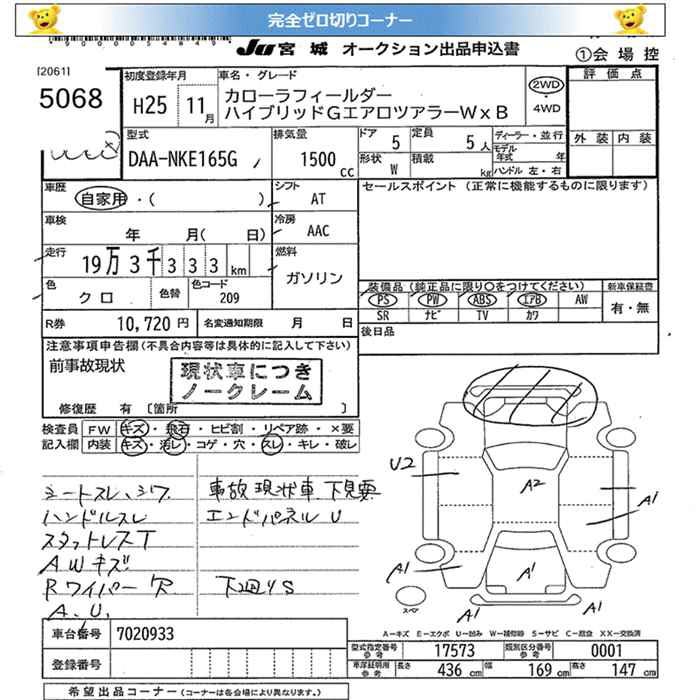 完全ゼロ切りコーナー
JU 宮城 オークション出品申込書
①会場控
[2061]
5068
初度登録年月 H25 11月
車名・グレード
カローラフィールダー
ハイブリッドGエアロツアラーW×B
2WD・4WD
評価点
外装 内装
型式 DAA-NKE165G
排気量 1500cc
ドア 5 定員 5人
形状 W 積載 kg
ディーラー・並行
モデル年式 年
ハンドル 左・右
車歴 自家用・( )
シフト AT
セールスポイント (正常に機能するものに限ります)
車検 年 月( 日)
冷房 AAC
走行 19万3千333km
燃料 ガソリン
色 クロ 色替 色コード 209
装備品(純正品に限り○をつけてください)
新車保証書
PS PW ABS エアB AW
SR ナビ TV カワ
有・無
R券 10,720円 名変通知期限 月 日
後日品
注意事項申告欄(不具合内容等は具体的に記入して下さい)
前事故現状
現状車につき
ノークレーム
修復歴 有 [箇所 ]
検査員 FW キズ・飛石・ヒビ割・リペア跡・×要
記入欄 内装 キズ・汚レ・コゲ・穴・スレ・キレ・破レ
シートスレ、シワ
ハンドルスレ
スタットレスT
AWキズ
Rワイパー欠
A.U.
事故現状車 下見要
エンドパネルU
下廻りS
U2
A2
A1
A1
A1
A1
A1
A1
スペア
A−キズ E−エクボ U−凹み W−補修跡 S−サビ C−腐食 XX−交換済
車台番号 7020933
登録番号
型式指定番号参考 17573 類別区分番号参考 0001
車庫証明用参考 長さ 436cm 幅 169cm 高さ 147cm
希望出品コーナー (コーナーは各会場により異なります。)